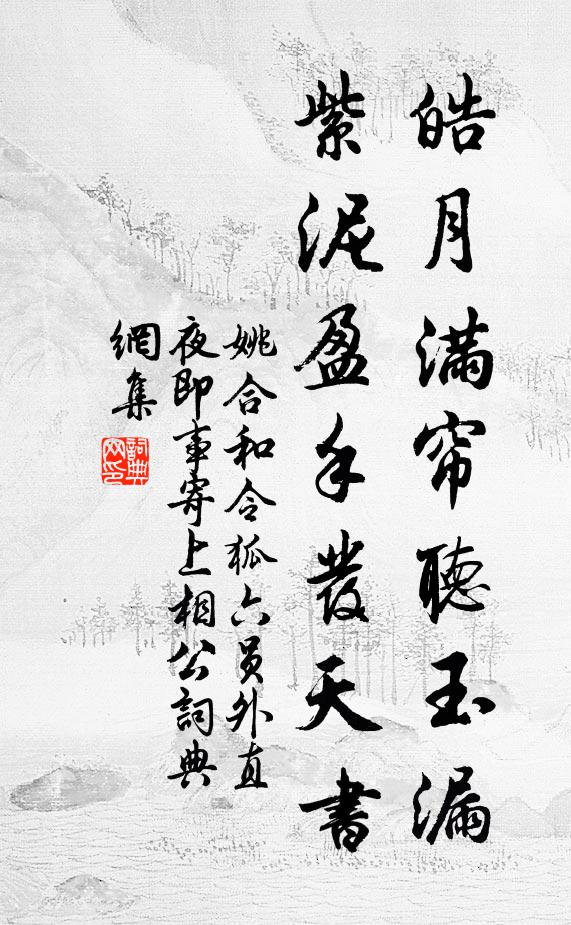 皓月满帘聽玉漏
紫泥盈手發天書
姚合和令狐六员外直
夜即事寄上相公詞典
網集
詞典
网印